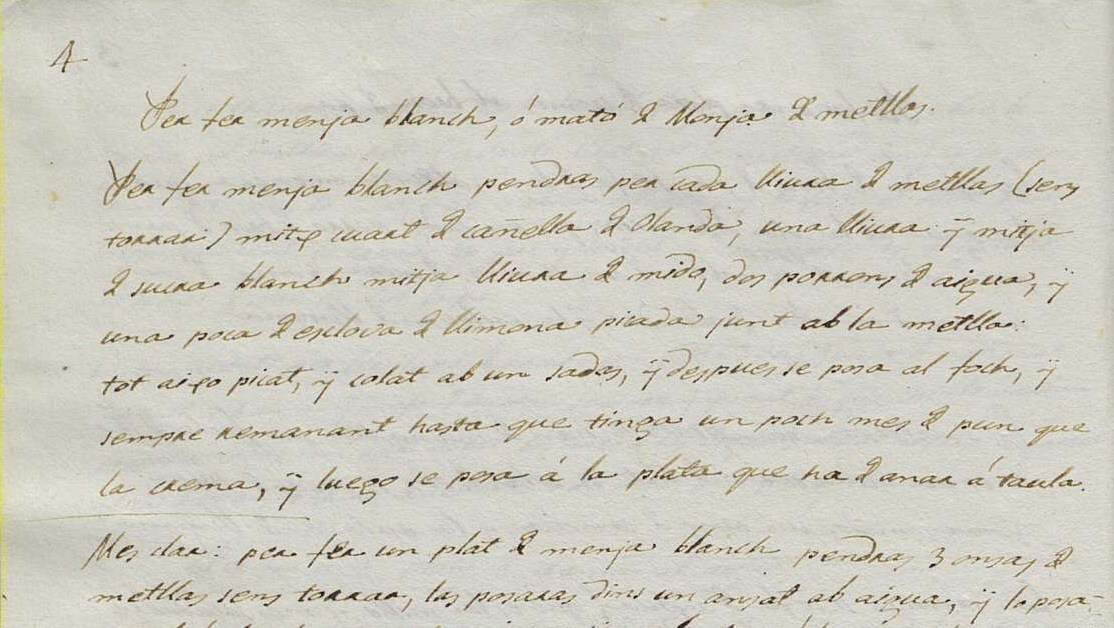 4
Per fer menja blanch, ó mató de Monja de metllas.
Per fer menja blanch pendras per cada lliura de metllas (sens
torrar) mitg cuart de cañella de Olanda, una lliura ÿ mitja
de sucra blanch mitja lliura de mido, dos porrons de aigua, ÿ
una poca de esclova de llimona picada junt ab la metlla:
tot aiço picat, ÿ colat ab un sadas, ÿ despues se posa al foch, ÿ
sempre remanant hasta que tinga un poch mes de pun que
la crema, ÿ luego se posa á la plata que ha de anar á taula.
Mes clar: per fer un plat de menja blanch pendras 3 onsas de
metllas sens torrar, las posaras dins un ansat ab aigua, ÿ lo posa-